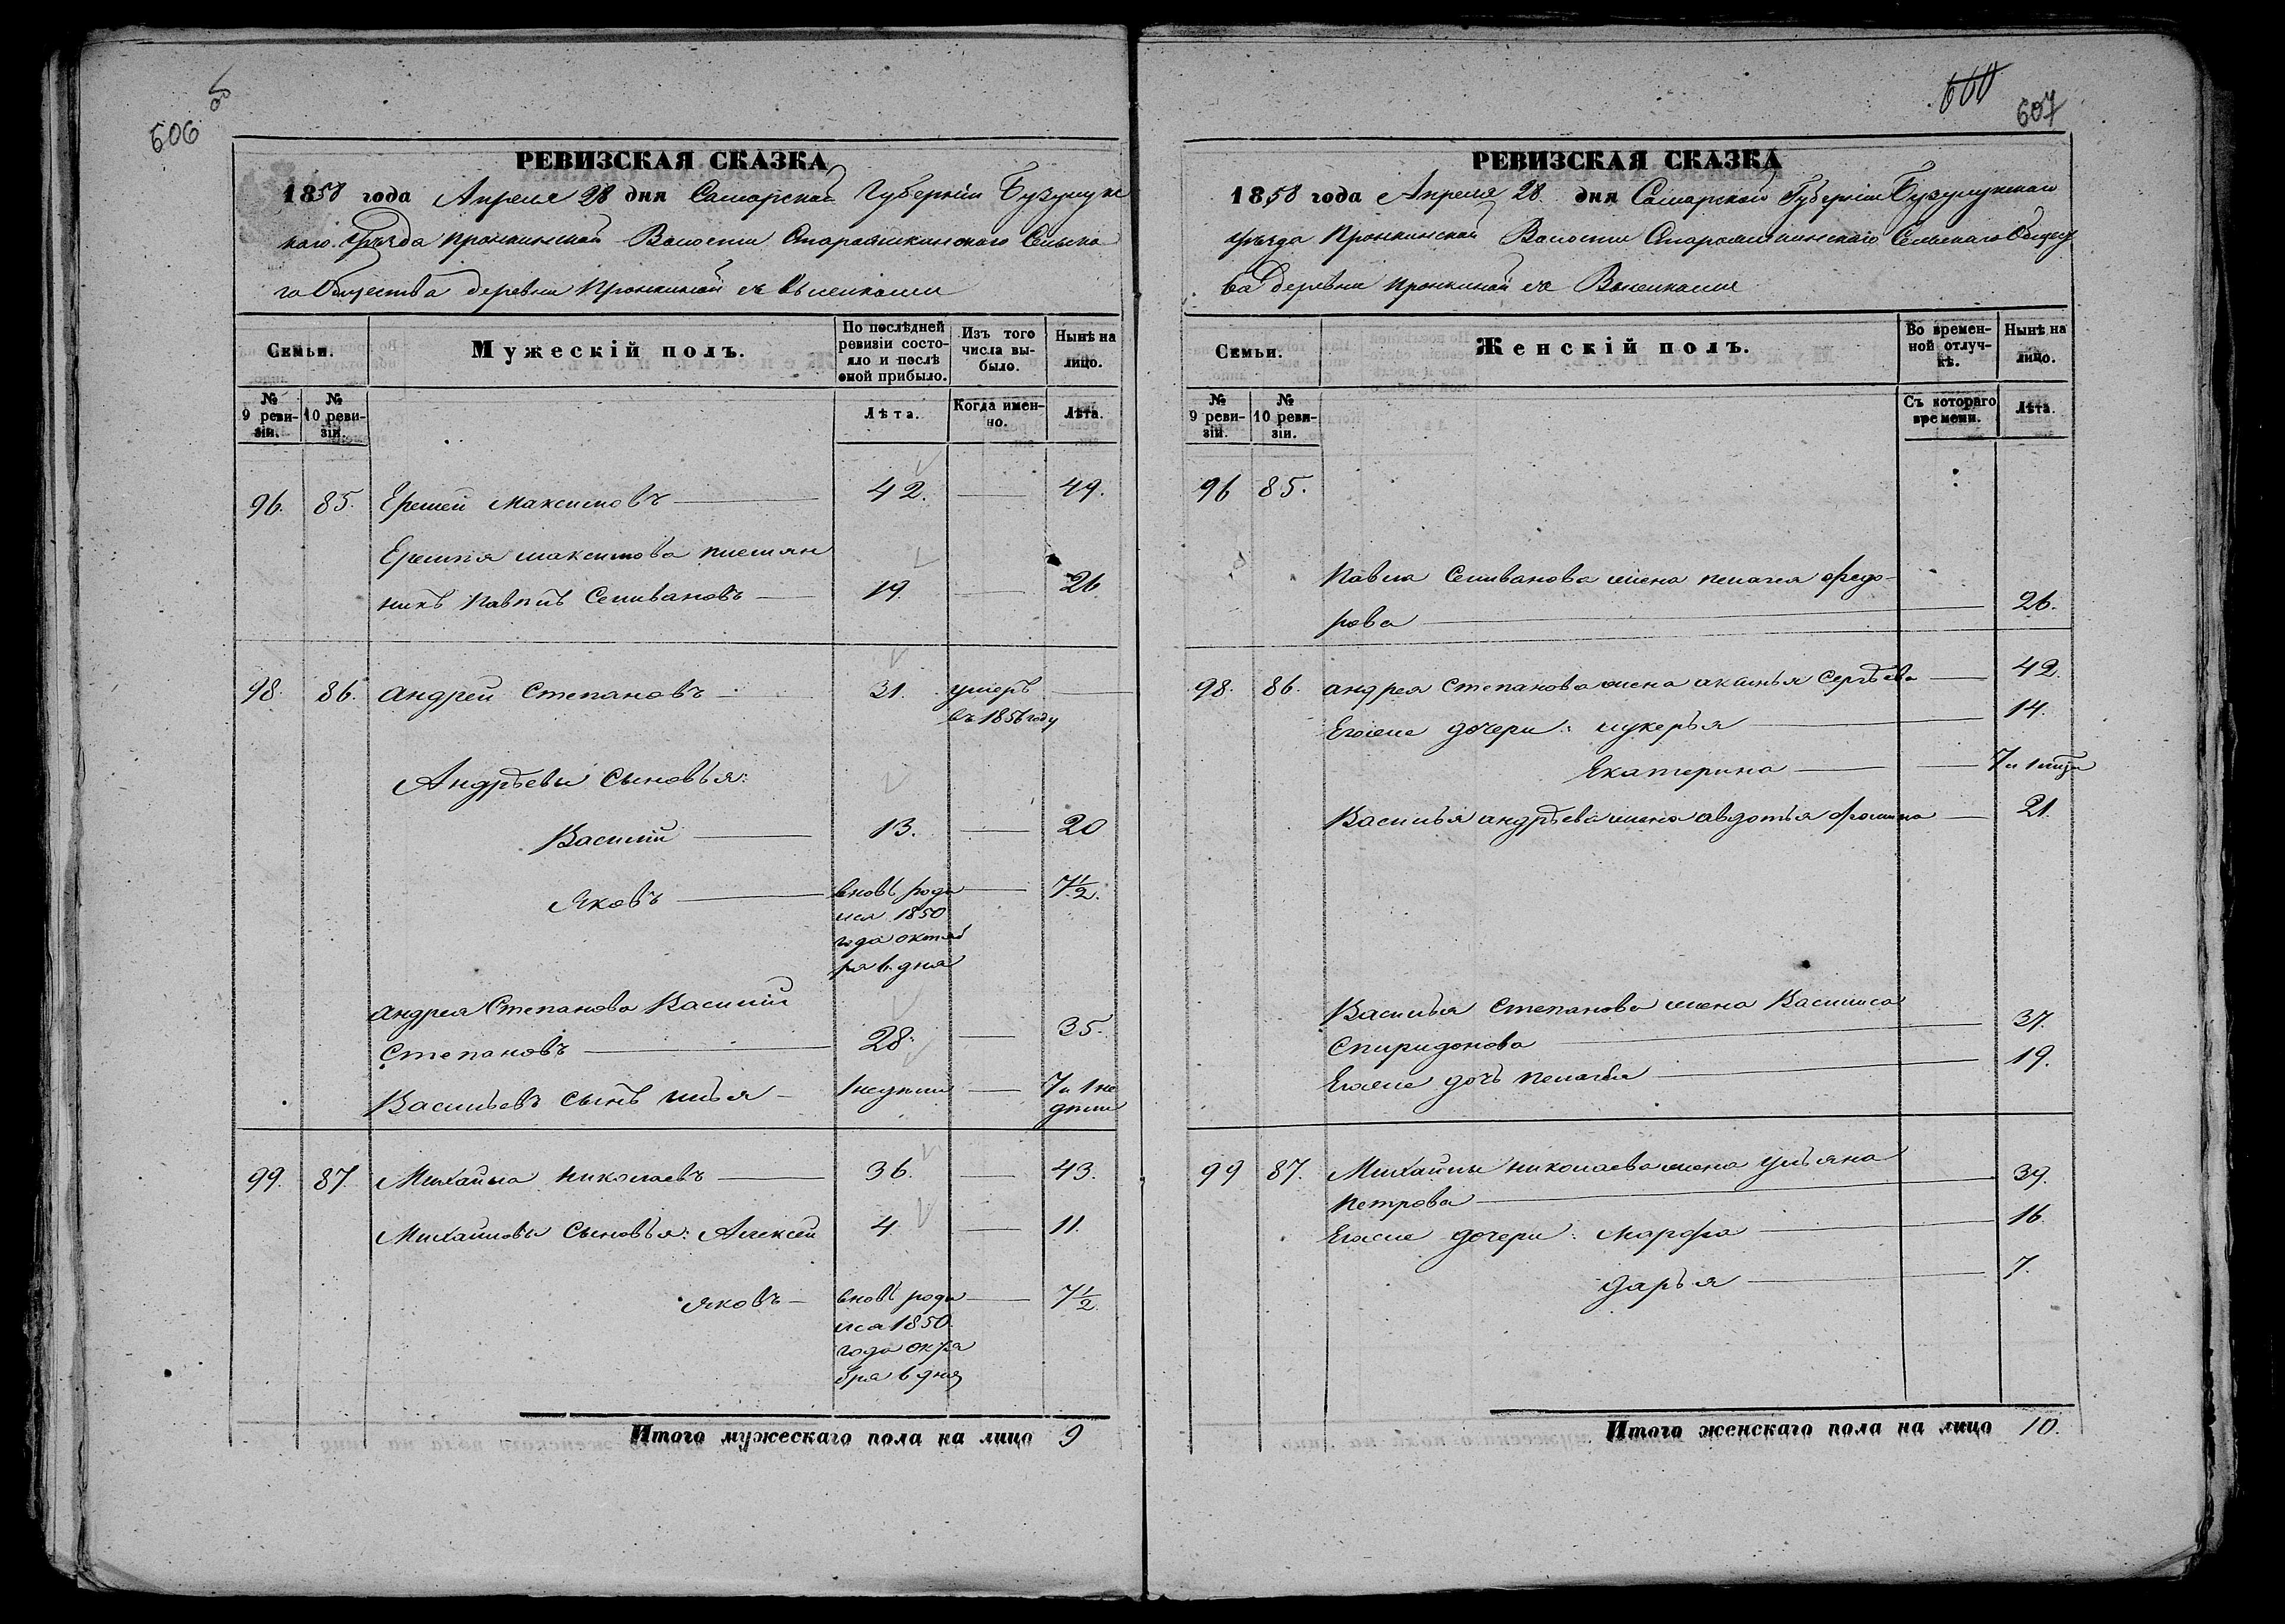 606
РЕВИЗСКАЯ СКАЗКА
1858 года Апреля 28 дня Самарской Губерніи Бузулукс
каго Уѣзда Пронкинской Волости Сельска
го Общества деревни Пронкиной съ Выселками
Семьи.
Мужескій полъ.
По послѣдней ревизіи состояло и послѣ оной прибыло.
Изъ того числа выбыло.
Нынѣ на лицо.
№ 9 ревизіи.
№ 10 ревизіи.
Лѣта.
Когда именно.
Лѣта.
96. 85. Еремей Максимовъ 42. 49.
Еремѣя Максимова племян
никъ Павелъ Селивановъ 19 26
98. 86. Андрей Степановъ 31. умеръ
въ 1856 году
Андрѣевы сыновья:
Василій 13. 20
Яковъ вновь роди 7 1/2.
лся 1850
года октяб
ря 6 дня
Андрея Степанова Василій
Степановъ 28. 35.
Васильевъ сынъ Илья 1 недѣли 7 и 1 не
дѣли
99. 87. Михайла Николаевъ 36. 43.
Михайловы сыновья: Алексей 4. 11.
Яковъ вновь роди 7 1/2.
лся 1850
года октя
бря 6 дня
Итого мужескаго пола на лицо 9
660
607
РЕВИЗСКАЯ СКАЗКА
1858 года Апреля 28 дня Самарской Губерніи Бузулукскаго
Уѣзда Пронкинской Волости Сельскаго Общест
ва Деревни Пронкиной съ Выселками
Семьи.
Женскій полъ.
Во временной отлучкѣ.
Нынѣ на лицо.
№ 9 ревизіи.
№ 10 ревизіи.
Съ котораго времени.
Лѣта.
96 85.
Павла Селиванова жена Пелагея Федо-
рова 26.
98. 86. Андрея Степанова жена Аксинья Сергѣева 42.
Егоже дочери: Лукерья 14.
Екатерина 7 и 1 мѣся
Василья Андрѣева жена Авдотья Фомина 21.
Василья Степанова жена Василиса
Спиридонова 37.
Егоже дочь Пелагея 19.
99 87. Михайлы Николаева жена Ульяна
Петрова 39.
Егоже дочери: Марфа 16
Дарья 7.
Итого женскаго пола на лицо 10.